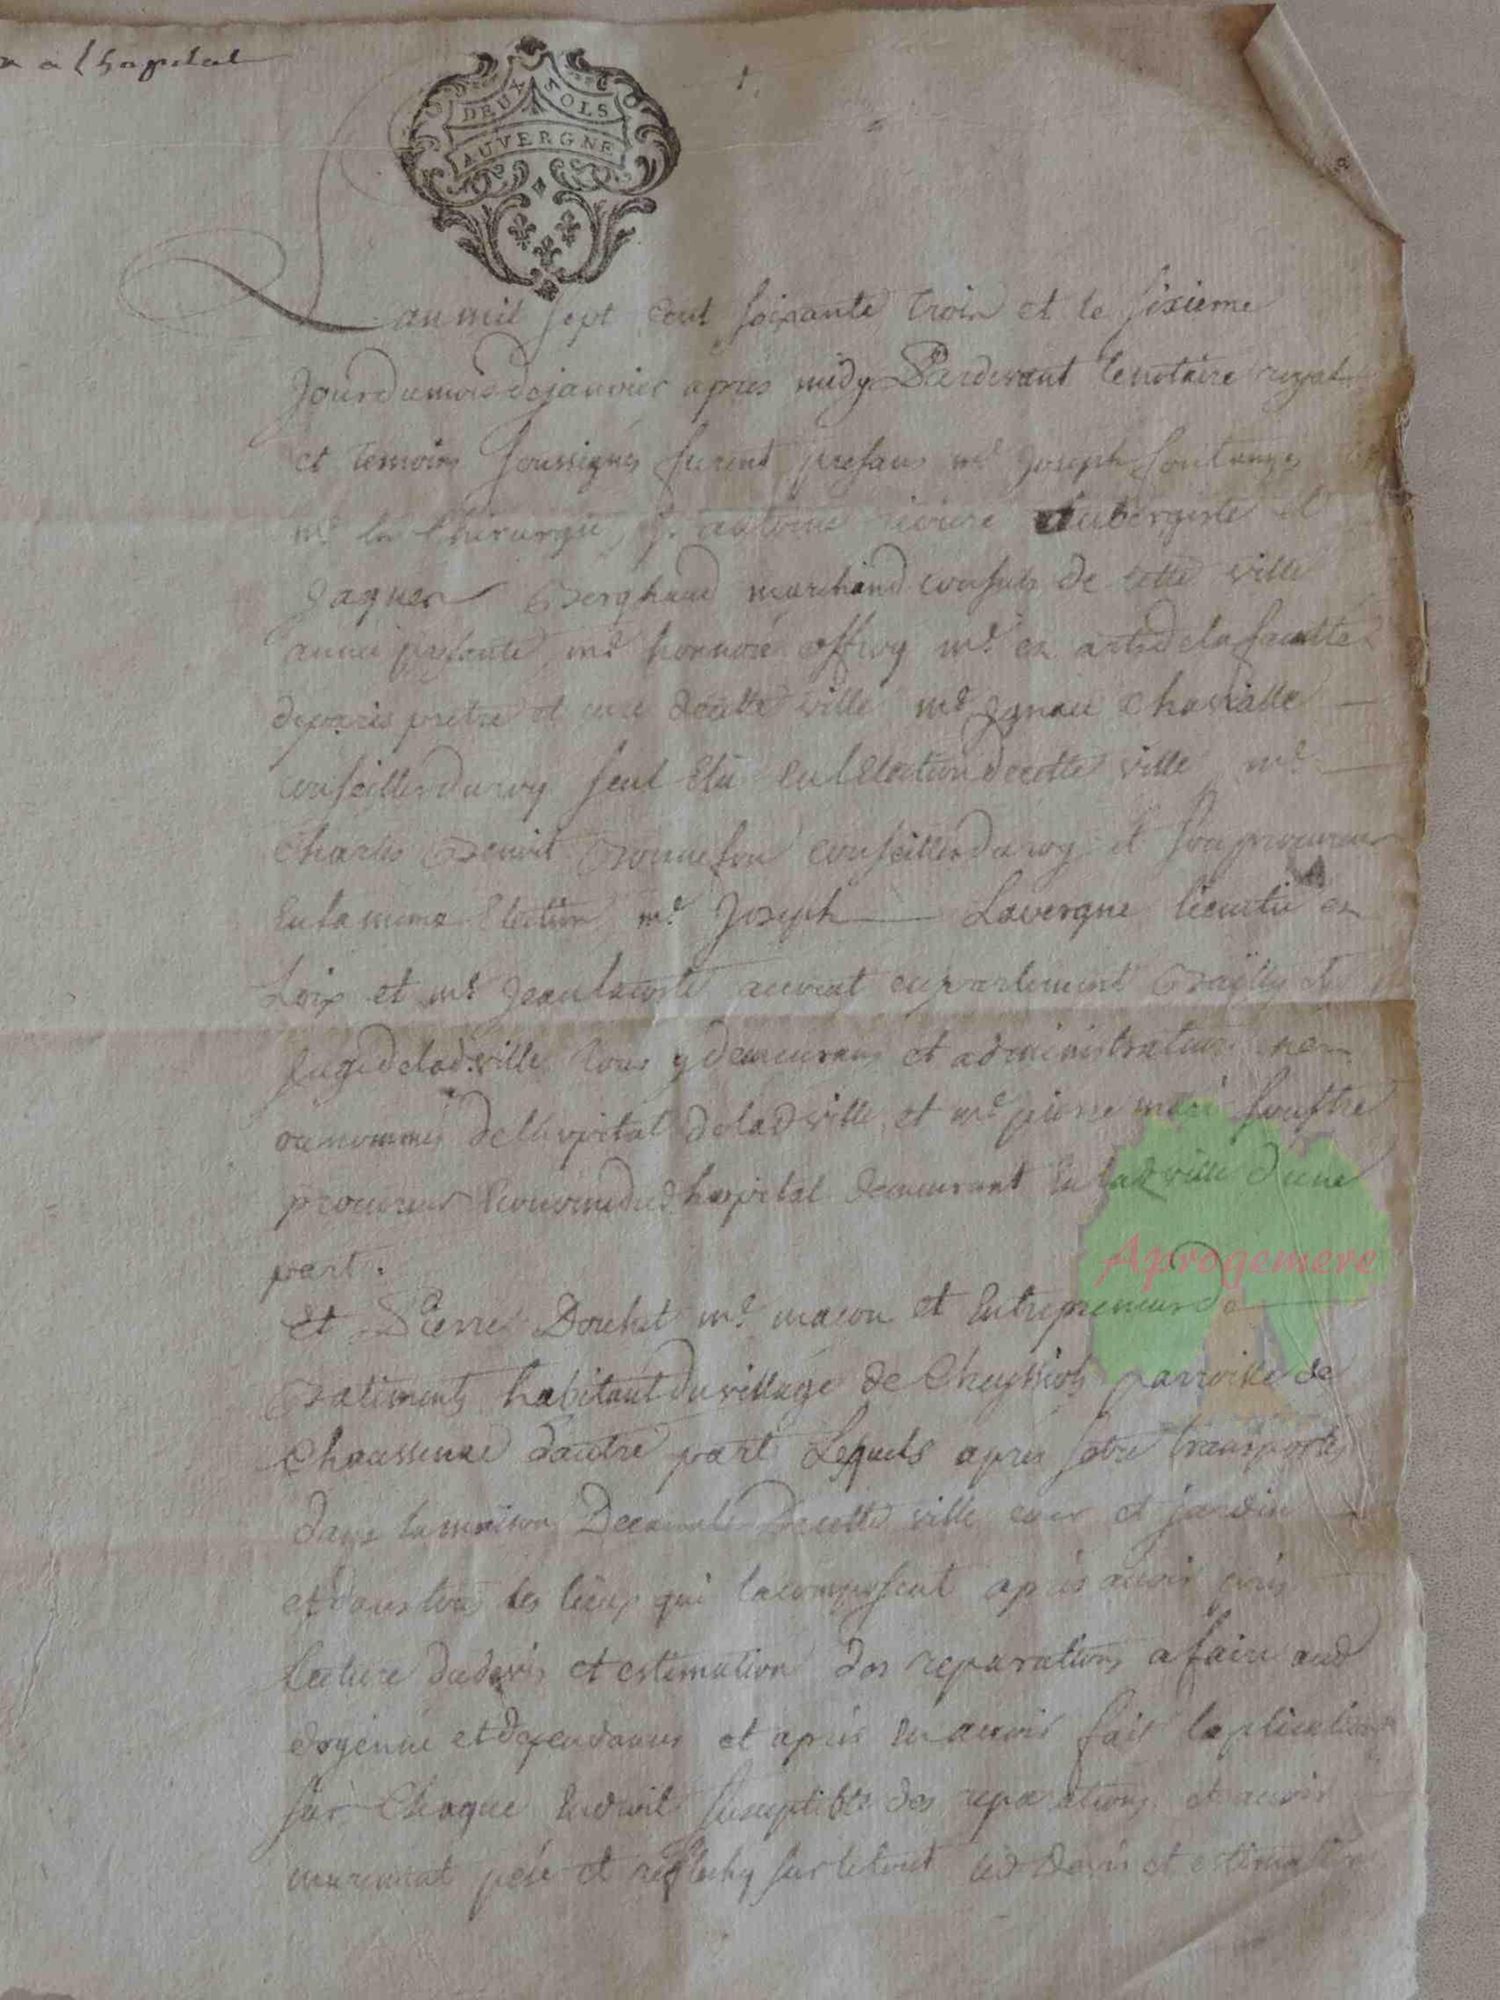 a a lhopital
DEUX SOLS
AUVERGNE
Lan mil sept cent soixante trois et le sixieme
jour du mois de janvier apres midy Pardevant le notaire royal
et temoins soussignés furent presans me Joseph
me en chirurgie, antoine aubergiste et
Jaques marchand consuls de cette ville
année presante, me honnoré me ez arts de la faculté
de paris pretre et curé de cette ville me Ignace
conseiller du roy seul Elu en lElection de cette ville me
Charles Benoit conseiller du roy et son procureur
en la meme Election me Joseph Lavergne licentié ez
Loix et me Jean avocat en parlement Bailly et
Juge de lad. ville tous y demeurans et administrateurs
nommés de lhopital de lad ville et me pierre
procureur demeurant en lad ville dune
part.
Et Pierre Douhet me macon et Entrepreneur de
Batiments habitant du village de parroisse de
Chaussenac dautre part Lesquels apres setre transportés
dans la maison Decanale de cette ville cour et jardin
et dans tous les lieux qui la composent apres avoir pris
lecture du devis et estimation des reparations a faire aud
doyenné et dependances et apres en avoir fait laplication
sur Chaque Endroit susceptible des reparations et avoir
murement pesé et reflechy sur le tout led devis et estimation
Aprogemere